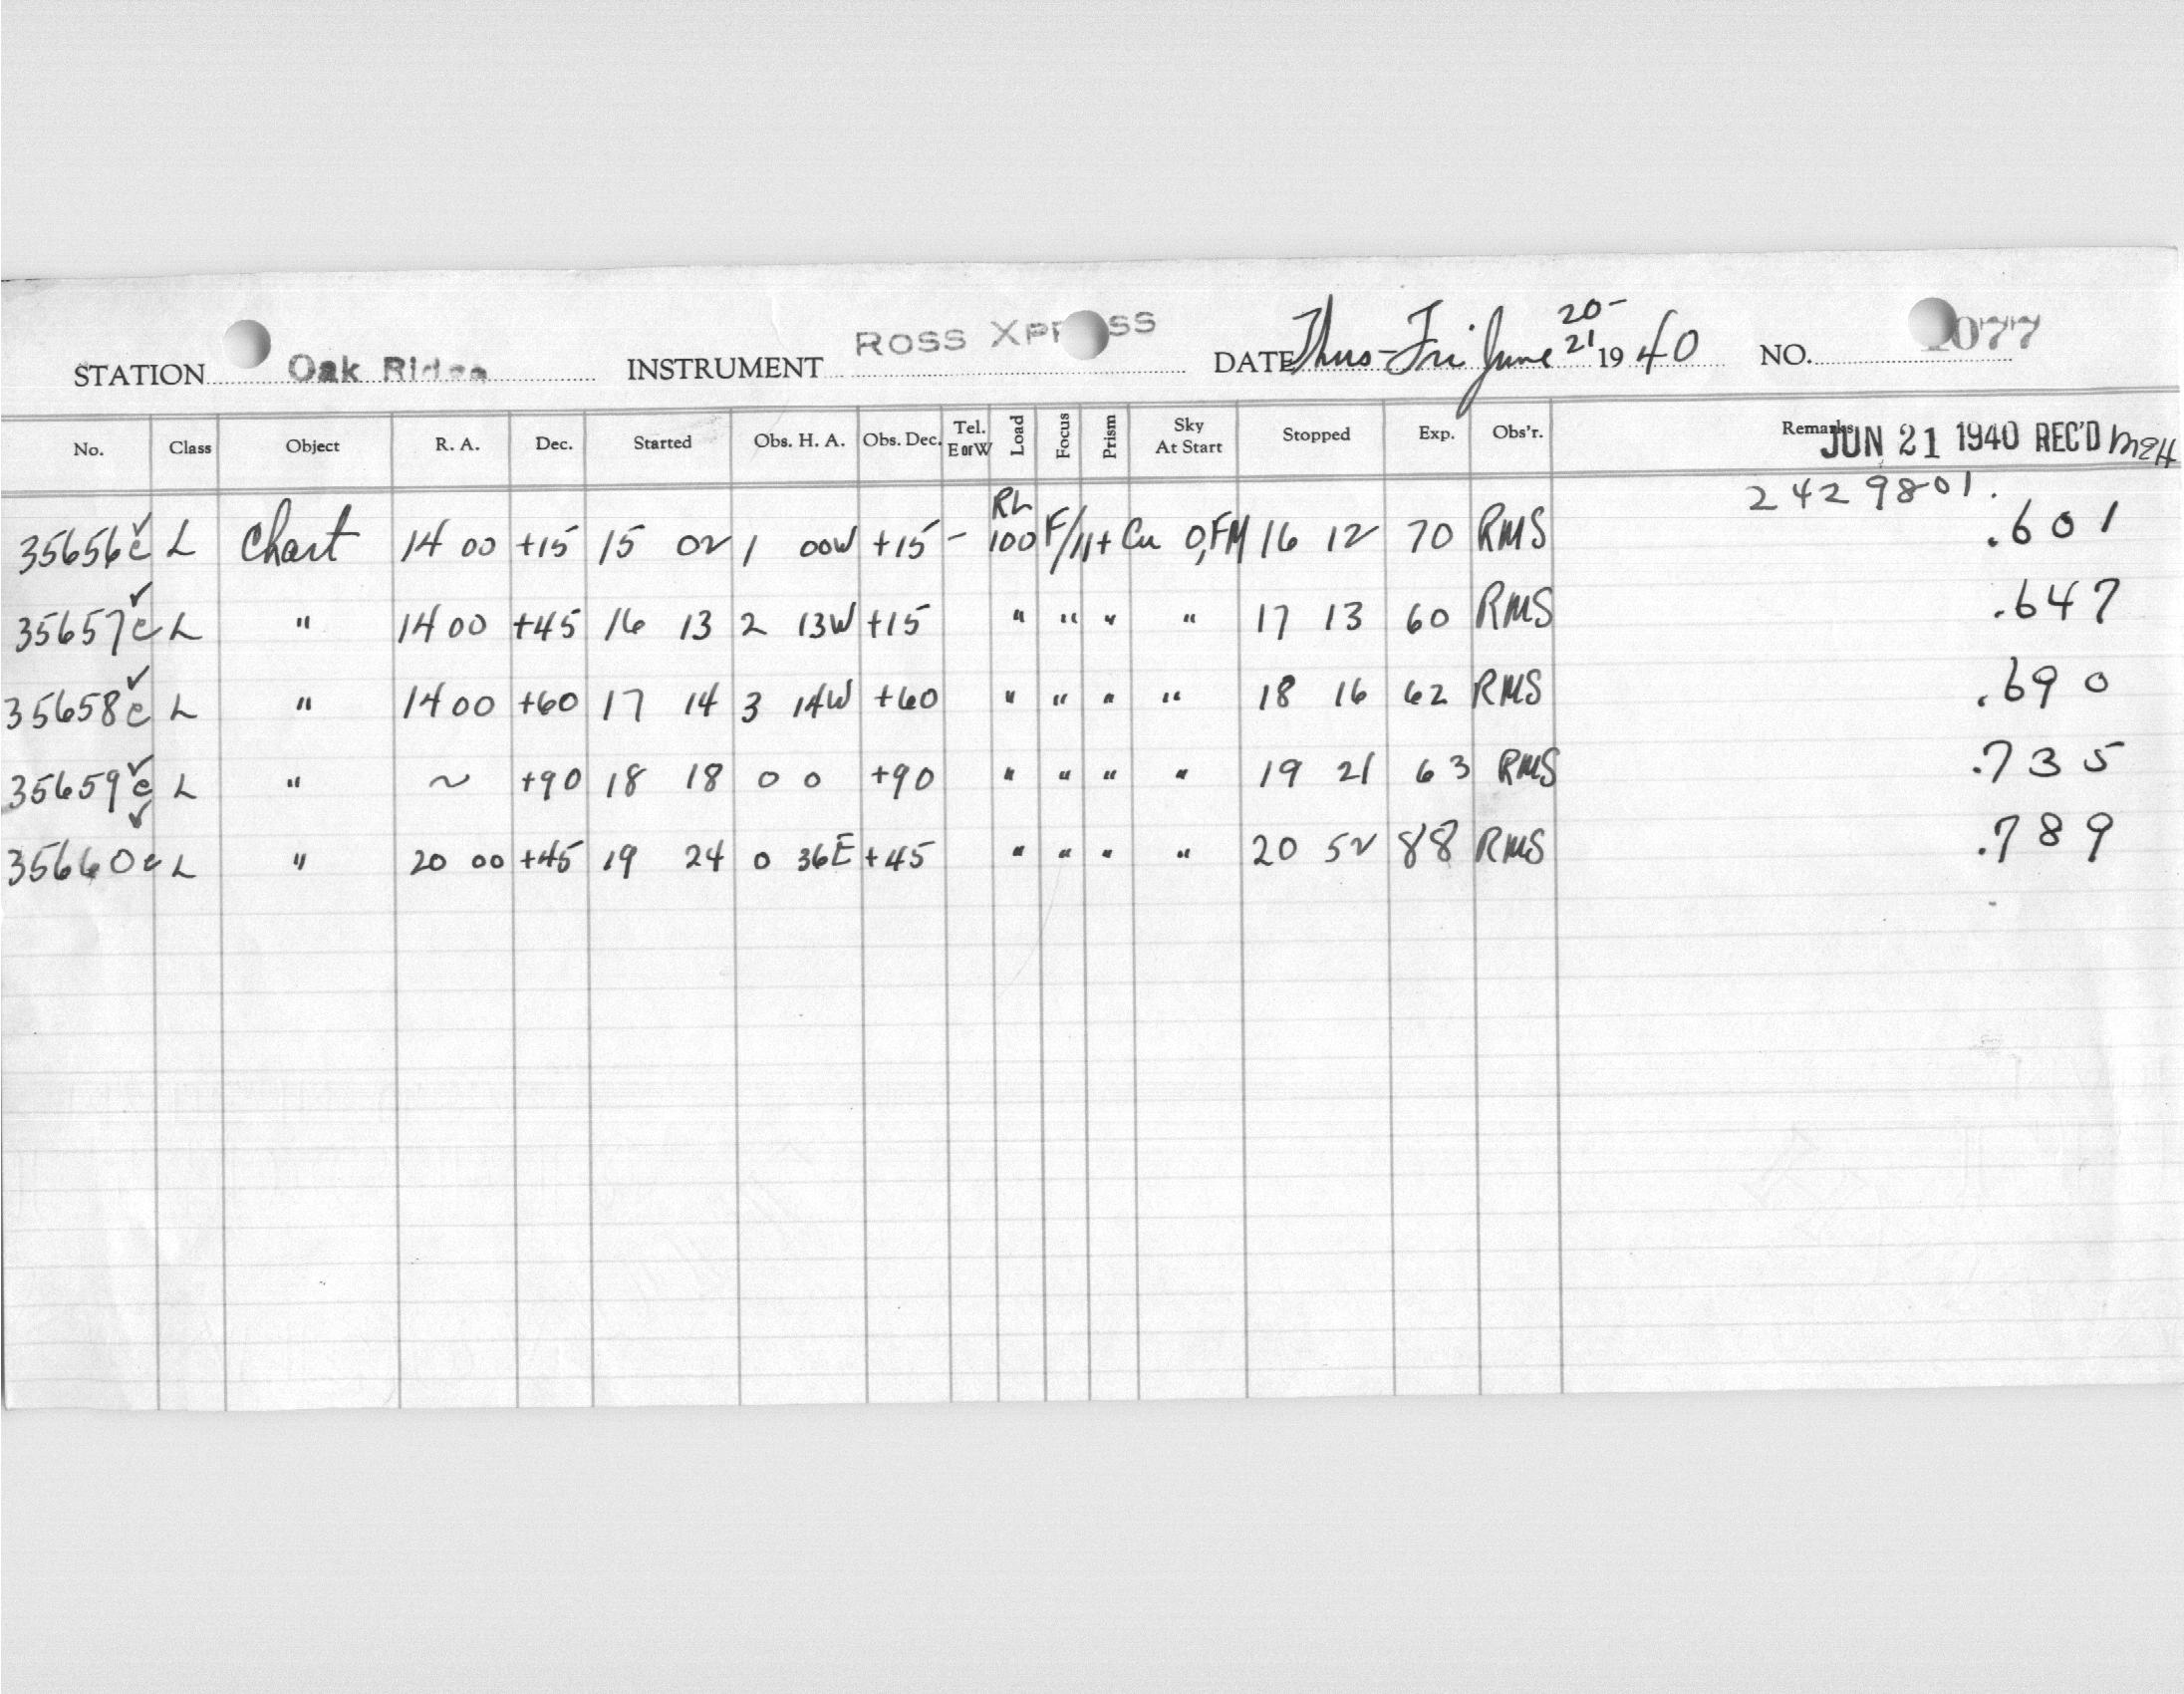 STATION Oak Ridge INSTRUMENT ROSS XPRESS DATE Thus-Fri June 20-21 1940 NO. 077
No. Class Object R. A. Dec. Started Obs. H. A. Obs. Dec. Tel. E or W Load Focus Prism Sky At Start Stopped Exp. Obs'r. Remarks JUN 21 1940 REC'D
2429801.
35656c ✓ L Chart 14 00 +15 15 02 1 00W +15 - RL 100 F/11+ Cu 0,FM 16 12 70 RMS .601
35657c ✓ L " 14 00 +45 16 13 2 13W +15 " " " " 17 13 60 RMS .647
35658c ✓ L " 14 00 +60 17 14 3 14W +60 " " " " 18 16 62 RMS .690
35659c ✓ L " ~ +90 18 18 0 0 +90 " " " " 19 21 63 RMS .735
35660c ✓ L " 20 00 +45 19 24 0 36E +45 " " " " 20 52 88 RMS .789